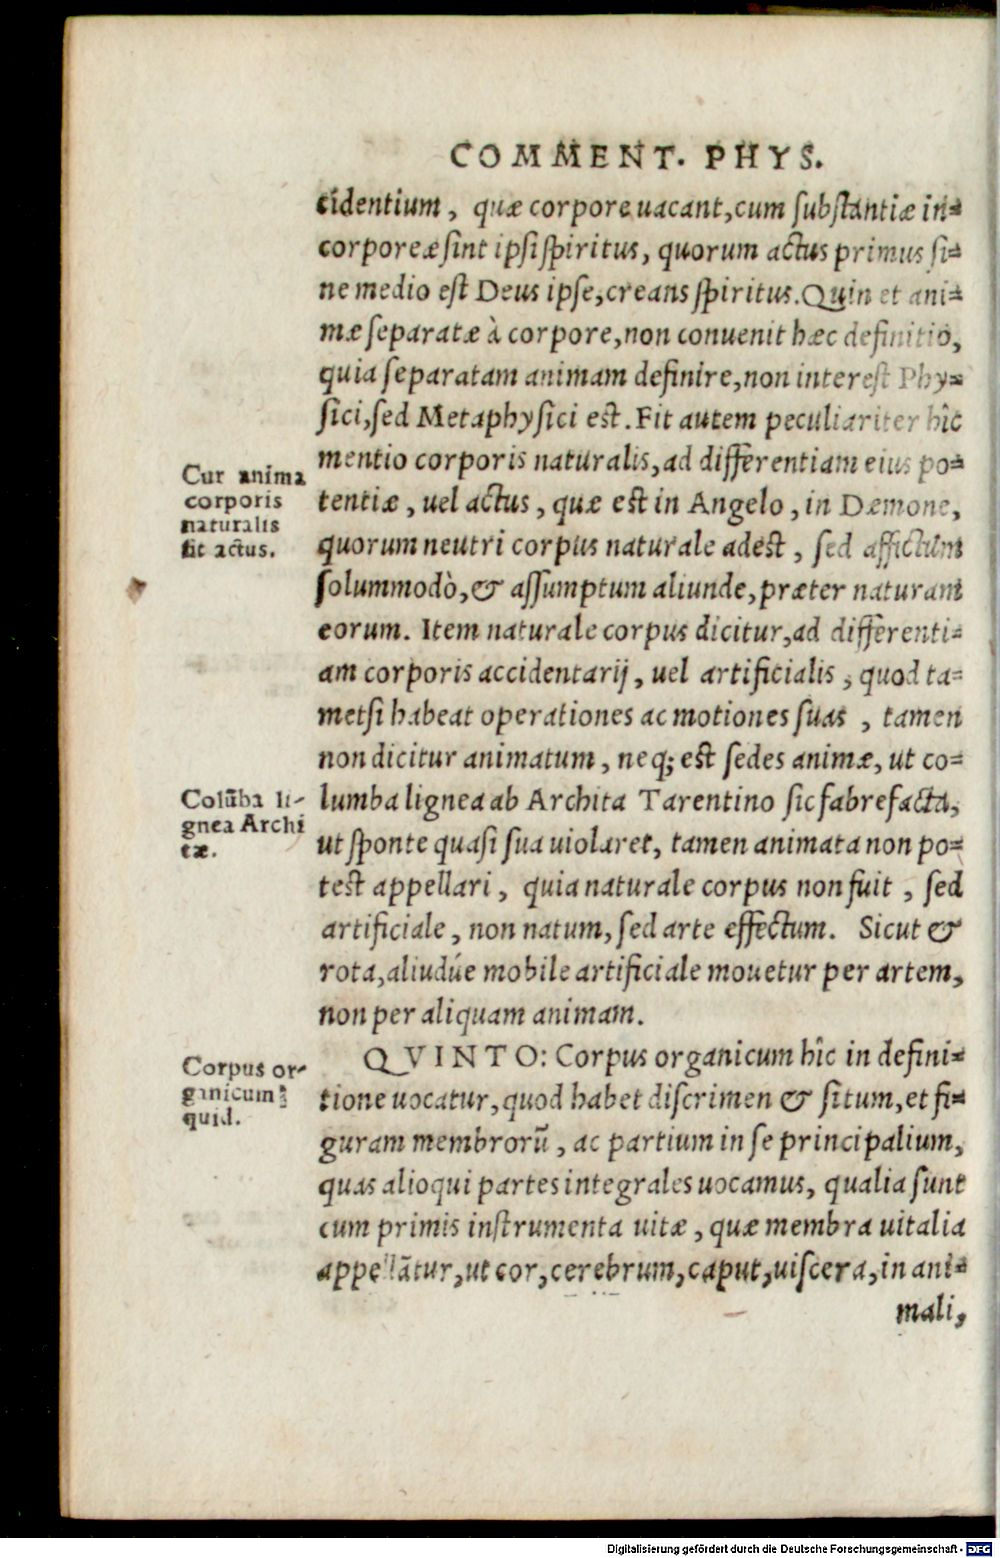 COMMENT. PHYS.
cidentium, quæ corpore uacant, cum substantiæ in-
corporeæ sint ipsi spiritus, quorum actus primus si-
ne medio est Deus ipse, creans spiritus. Quin et ani-
mæ separatæ à corpore, non conuenit hæc definitio,
quia separatam animam definire, non interest Phy-
sici, sed Metaphysici est. Fit autem peculiariter hîc
mentio corporis naturalis, ad differentiam eius po-
Cur anima
corporis
naturalis
sit actus.
tentiæ, uel actus, quæ est in Angelo, in Dæmone,
quorum neutri corpus naturale adest, sed affictum
solummodò, & assumptum aliunde, præter naturam
eorum. Item naturale corpus dicitur, ad differenti-
am corporis accidentarij, uel artificialis, quod ta-
metsi habeat operationes ac motiones suas, tamen
non dicitur animatum, neq; est sedes animæ, ut co-
Colūba li-
gnea Archi
tæ.
lumba lignea ab Archita Tarentino sic fabrefacta,
ut sponte quasi sua uiolaret, tamen animata non po-
test appellari, quia naturale corpus non fuit, sed
artificiale, non natum, sed arte effectum. Sicut &
rota, aliudúe mobile artificiale mouetur per artem,
non per aliquam animam.
QVINTO: Corpus organicum hîc in defini-
Corpus or-
ganicum
quid.
tione uocatur, quod habet discrimen & situm, et fi-
guram membrorū, ac partium in se principalium,
quas alioqui partes integrales uocamus, qualia sunt
cum primis instrumenta uitæ, quæ membra uitalia
appellātur, ut cor, cerebrum, caput, uiscera, in ani-
mali,
Digitalisierung gefördert durch die Deutsche Forschungsgemeinschaft - DFG